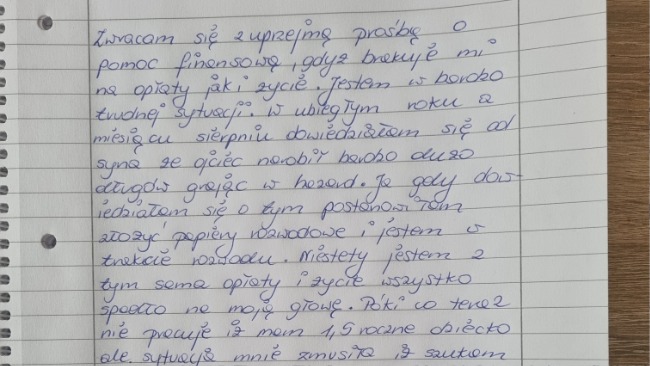 Zwracam się z uprzejmą prośbę o
pomoc finansową, gdyż brakuje mi
na opłaty jak i życie. Jestem w bardzo
trudnej sytuacji. W ubiegłym roku a
miesiącu sierpniu dowiedziałam się od
syna ze ojciec narobił bardzo duzo
długów grając w hazard. Ja gdy dow-
iedziałam się o tym postanowiłam
złożyć papiery rozwodowe i jestem w
trakcie rozwodu. Niestety jestem z
tym sama opłaty i życie wszystko
spadło na moją głowę. Póki co teraz
nie pracuje iż mam 1,5 roczne dziecko
ale sytuacja mnie zmusiła iż szukam